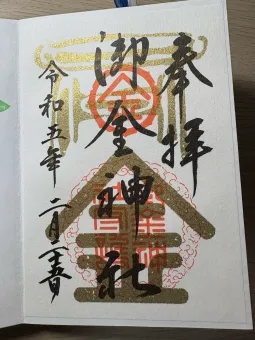 奉拝
御金神社
令和五年 二月